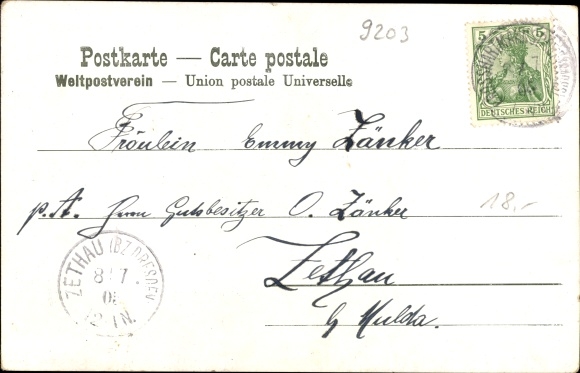 9203
Postkarte — Carte postale
Weltpostverein — Union postale Universelle
5 5
DEUTSCHES REICH
Fräulein Emmy Zänker
p. A. Herrn Gutsbesitzer O. Zänker
18.-
Zethau
b/ Mulda.
ZETHAU (BZ. DRESDEN)
8 7
N.